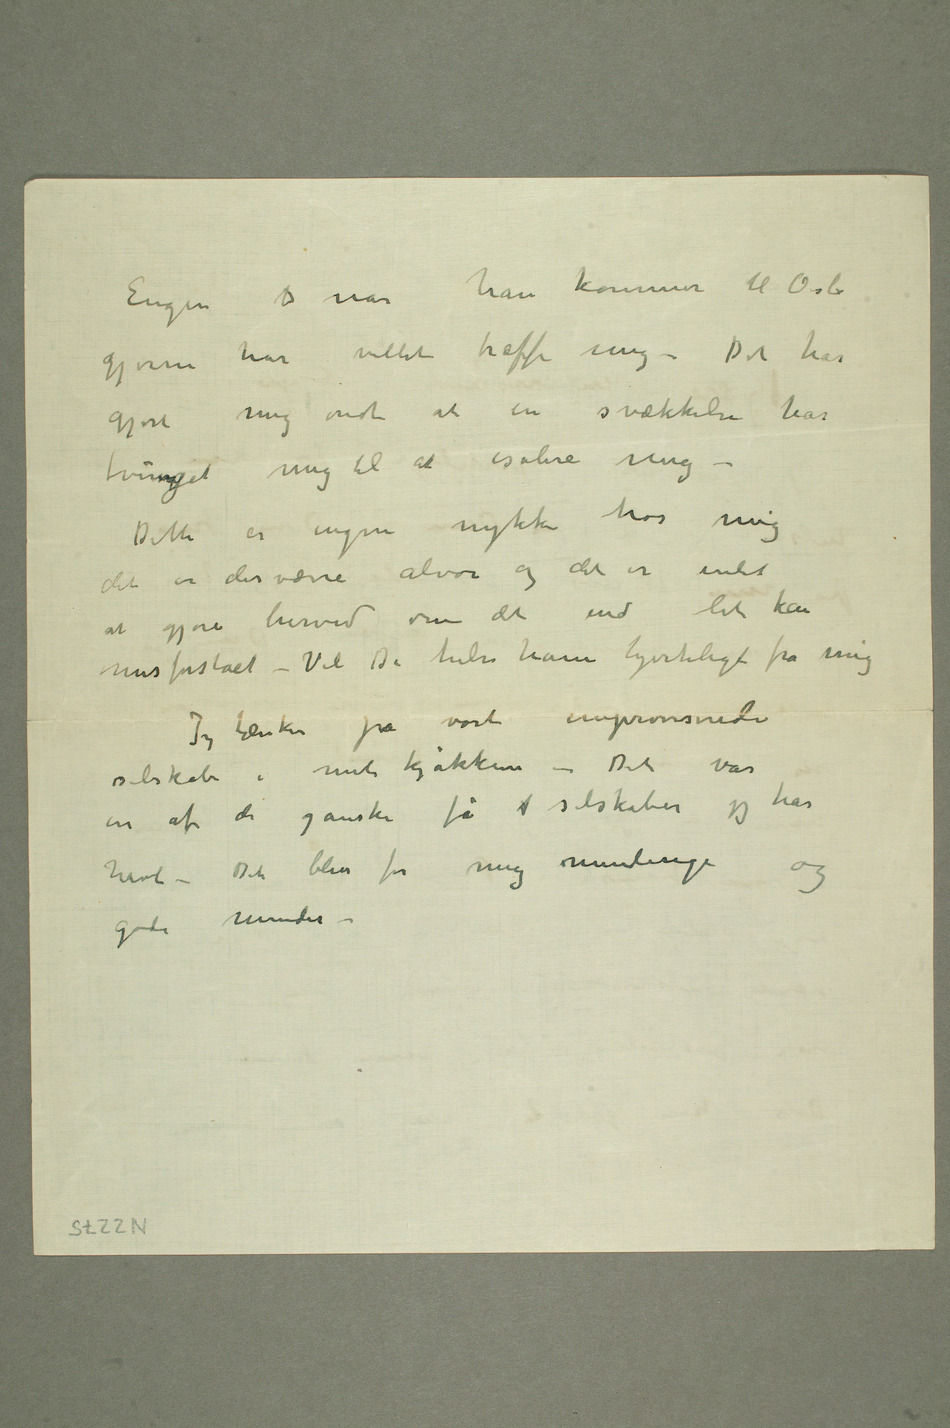 Eugen når han kommer til Oslo
gjerne har villet træffe mig – Det har
gjort mig ondt at en svækkelse har
tvunget mig til at isolere mig –
Dette er ingen nykke hos mig
det er desværre alvor og det er intet
at gjøre herved om det end let kan
misforståes – Vil De hilse ham hjerteligt fra mig
Jeg tænker på vort improviserede
selskab i mit kjøkken – Det var
en af de ganske få selskaber jeg har
havt – Det blev for mig mindrige og
gode minder –
N2275